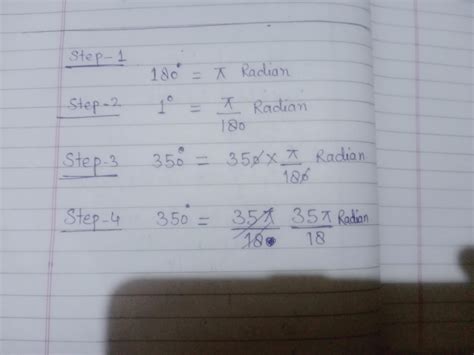 Step-1
180° = π Radian
Step-2 1° = π/180 Radian
Step-3 350° = 350 × π/180 Radian
Step-4 350° = 35π/180 35π/18 Radian